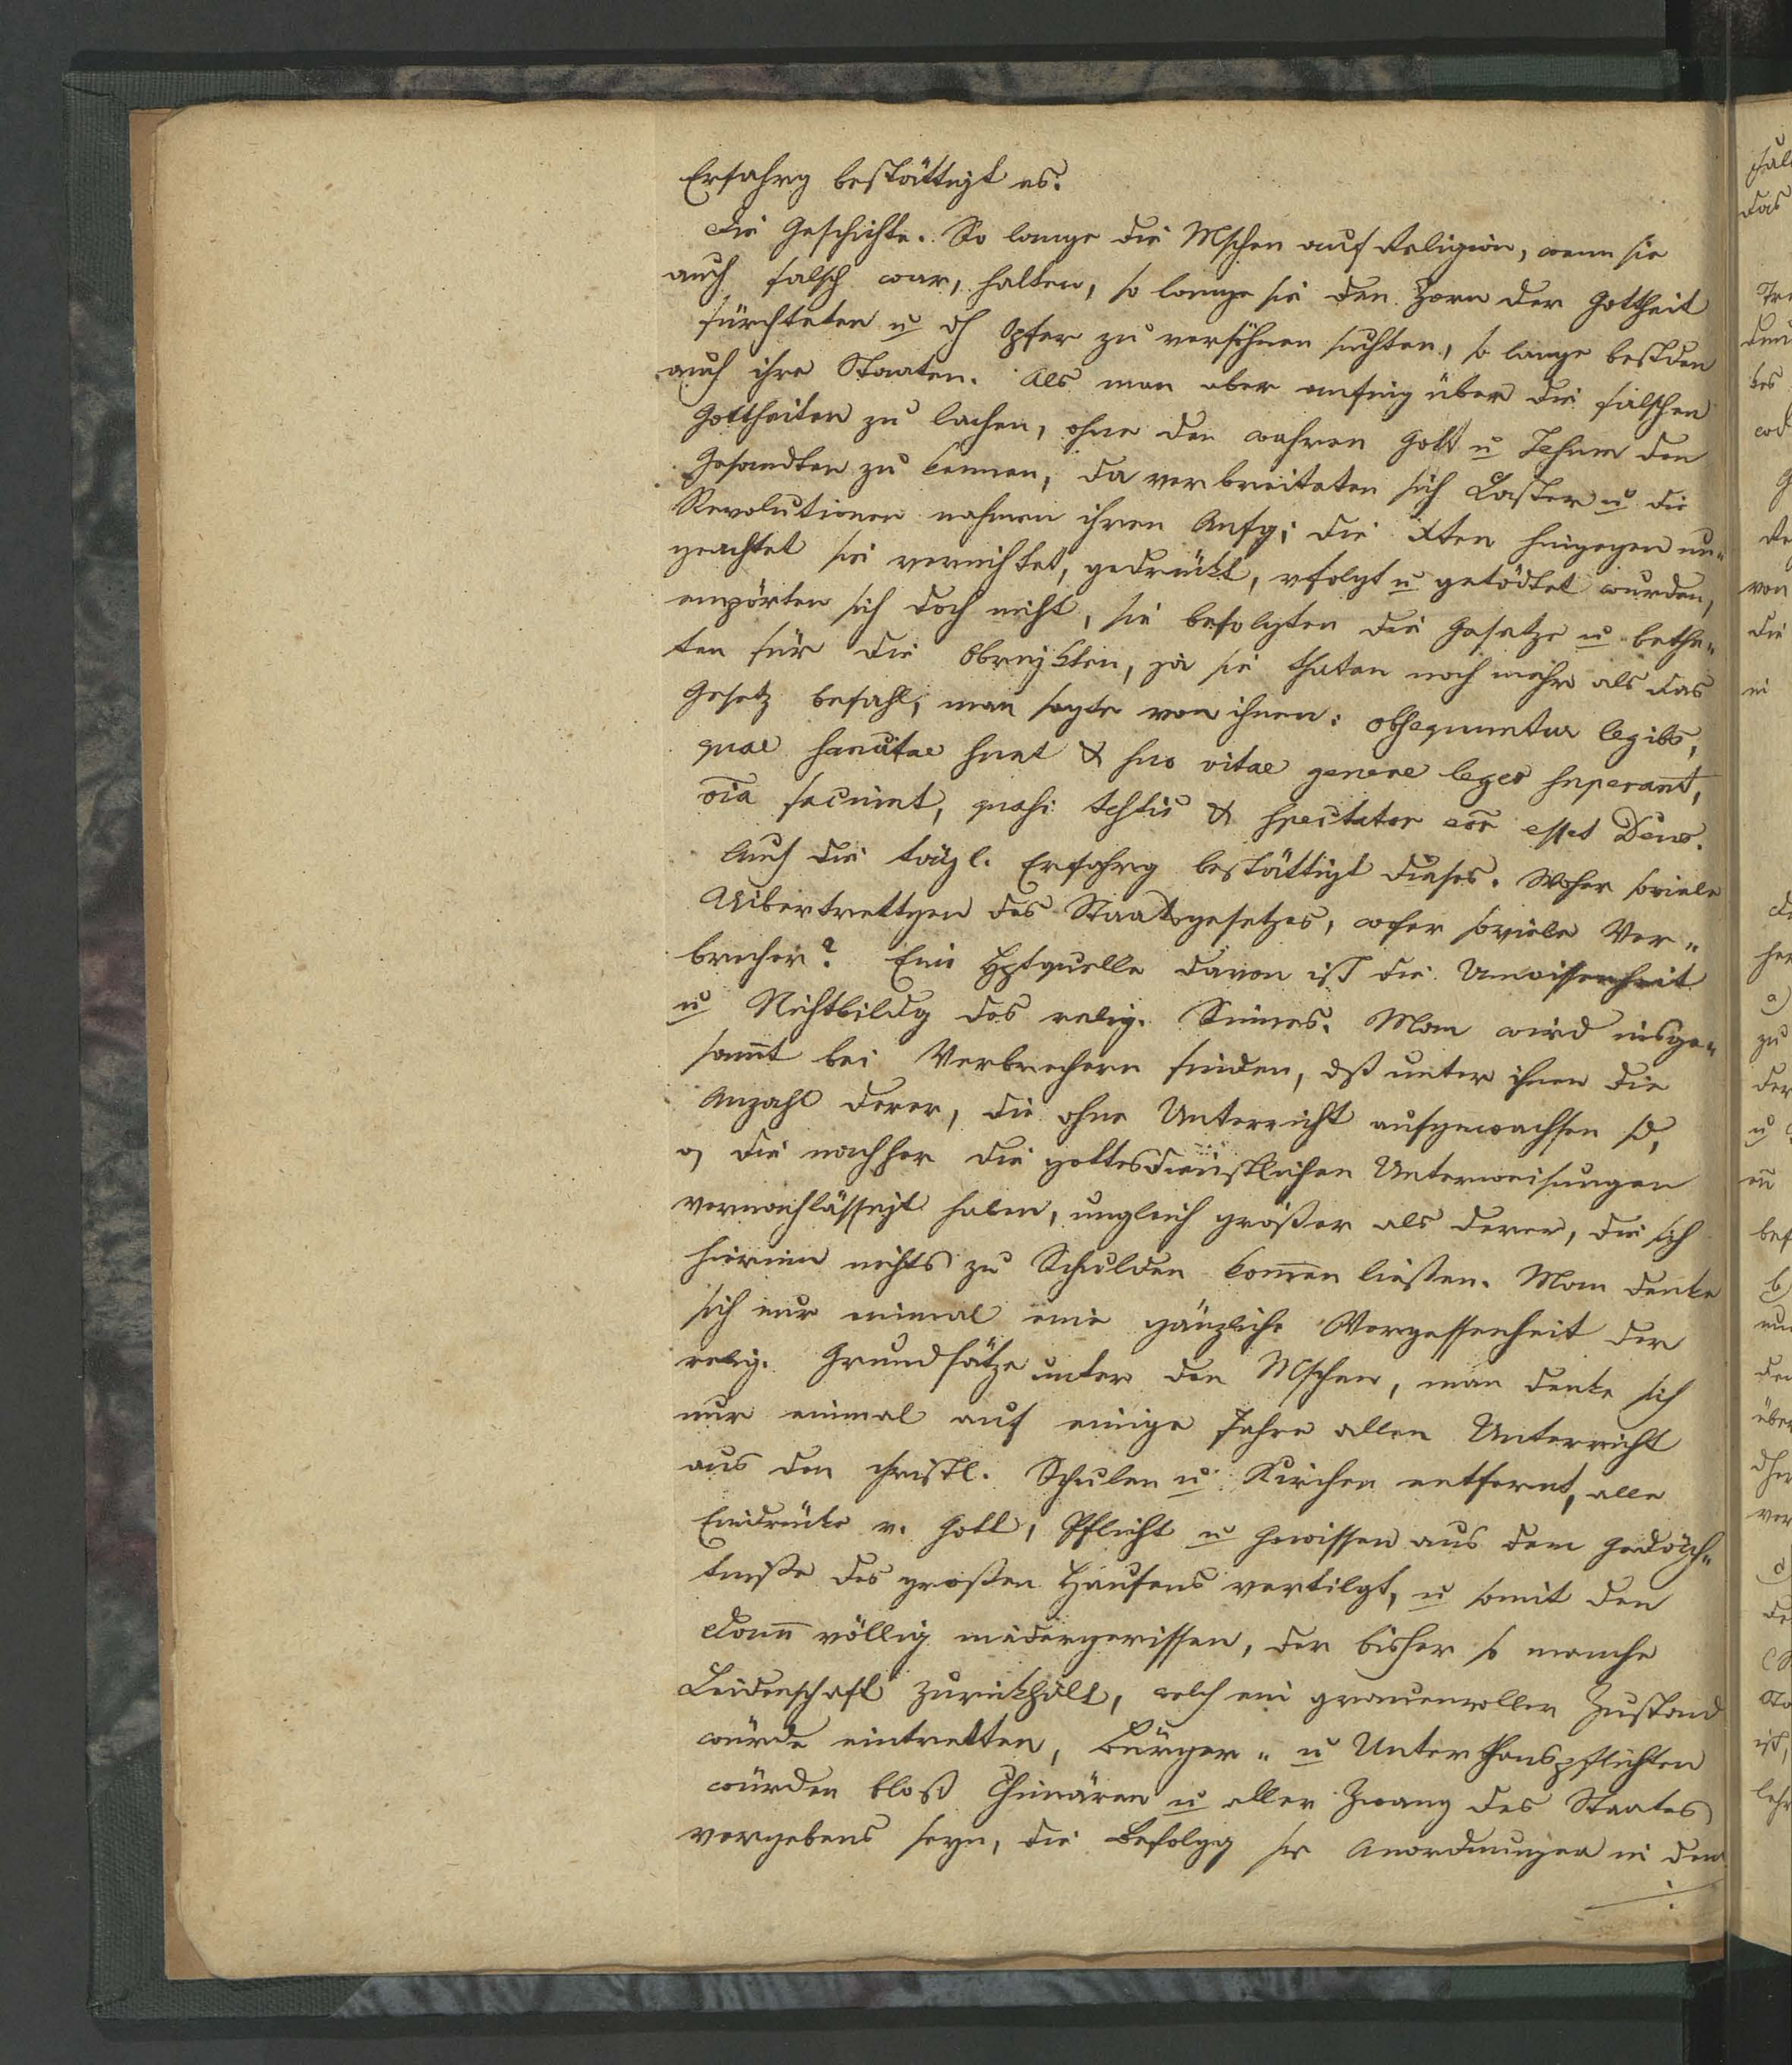 Erfahrg bestättigt es.
Die Geschichte. So lange die Mschen auf Religion, wenn sie
auch falsch war, halten, so lange sie den Zorn der Gottheit
fürchteten u dh Opfer zu versöhnen suchten, so lange bestden
auch ihre Staaten. Als man aber anfing über die falschen
Gottheiten zu lachen, ohne den wahren Gott u Jesum den
Gesandten zu kennen, da verbreiteten sich Laster u die
Revolutionen nahmen ihren Anfg; die Xten hingegen un„
geachtet sie vernichtet, gedrückt, vfolgt u getödtet wurden,
empörten sich doch nicht, sie befolgten die Gesetze u bethe„
ten für die Obrigkten, ja sie thaten noch mehr als das
Gesetz befahl; man sagte von ihnen: obsequuntur legibs,
quae sancitae sunt & suo vitae genere leges superant,
oia faciunt, quasi testis & spectator eor esset Deus.
Auch die tägl. Erfahrg bestättigt dieses. Woher soviele
Uibertrettgen des Staatsgesetzes, woher soviele Ver„
brecher? Eine Hptquelle davon ist die Unwissenheit
u Nichtbildg des relig. Sinnes. Man wird insge„
samt bei Verbrechern finden, dß unter ihnen die
Anzahl derer, die ohne Unterricht aufgewachsen sd,
o, die nachher die gottesdienstlichen Unterweisungen
vernachlässigt haben, ungleich größer als derer, die sich
hierinn nichts zu Schulden komen ließen. Man denke
sich nur einmal eine gänzliche Vergessenheit der
relig. Grundsätze unter den Mschen, man denke sich
nur einmal auf einige Jahre allen Unterricht
aus den christl. Schulen u Kirchen entfernt, alle
Eindrücke v. Gott, Pflicht u Gewissen aus dem Gedäch„
tniße des großen Haufens vertilgt, u somit den
Dam völlig niedergerissen, der bisher so manche
Leidenschaft zurückhält, welch ein grauenvoller Zustand
würde eintretten, Bürger„ u Unterthanspflichten
würden bloß Chimären u aller Zwang des Staates
vergebens seyn, die Befolgg sr Anordnungen in den